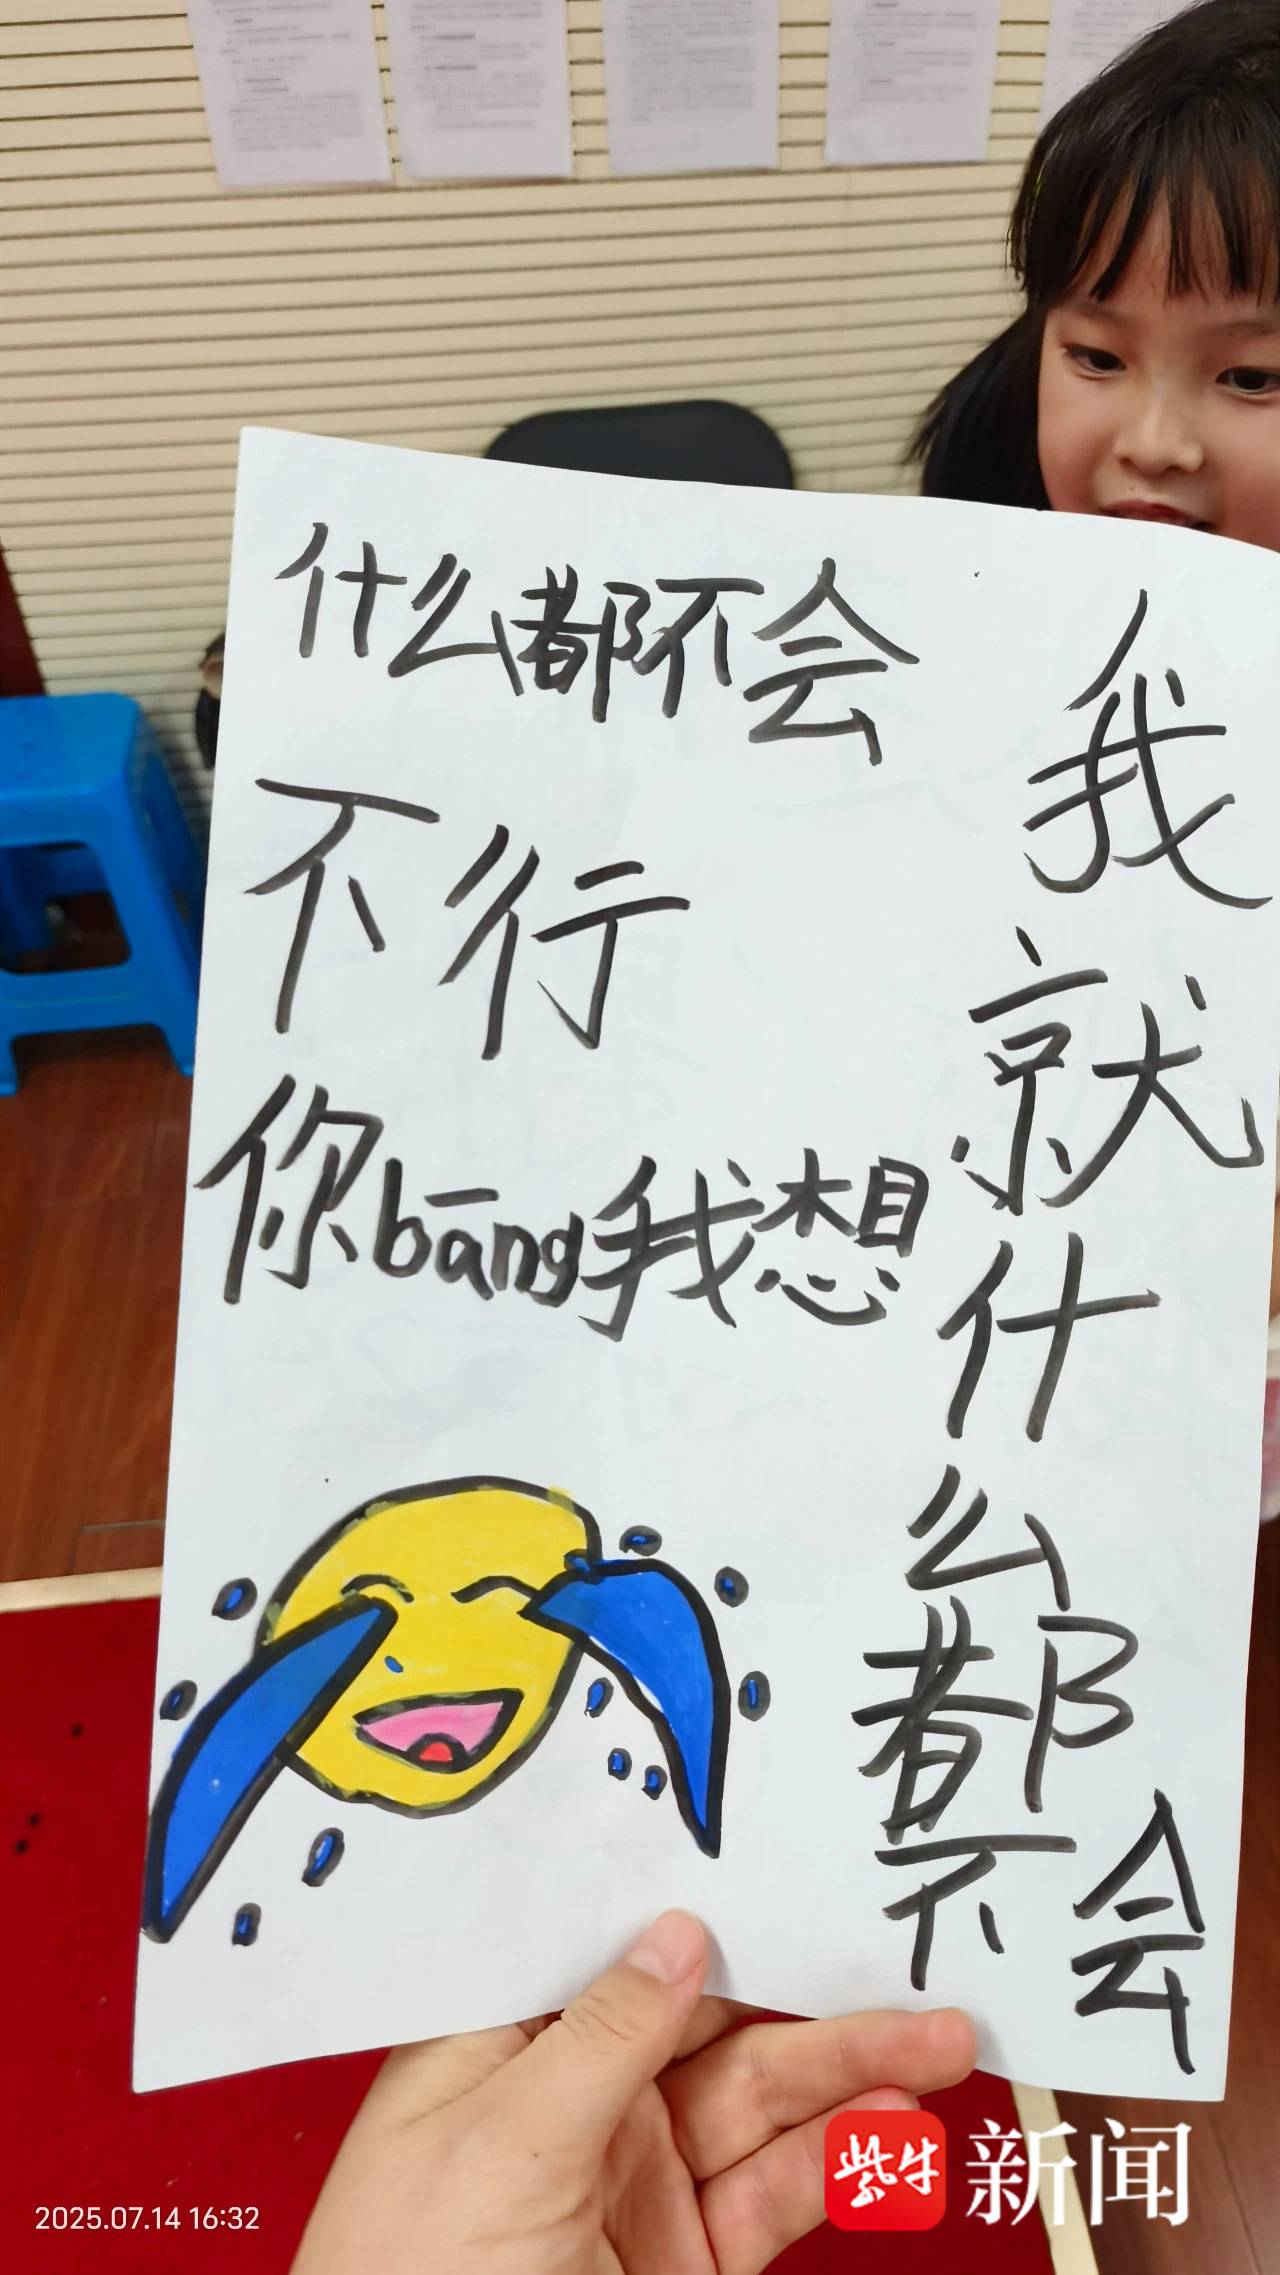 什么都不会
不行
你bāng我想
我就什么都不会
2025.07.14 16:32
紫牛新闻